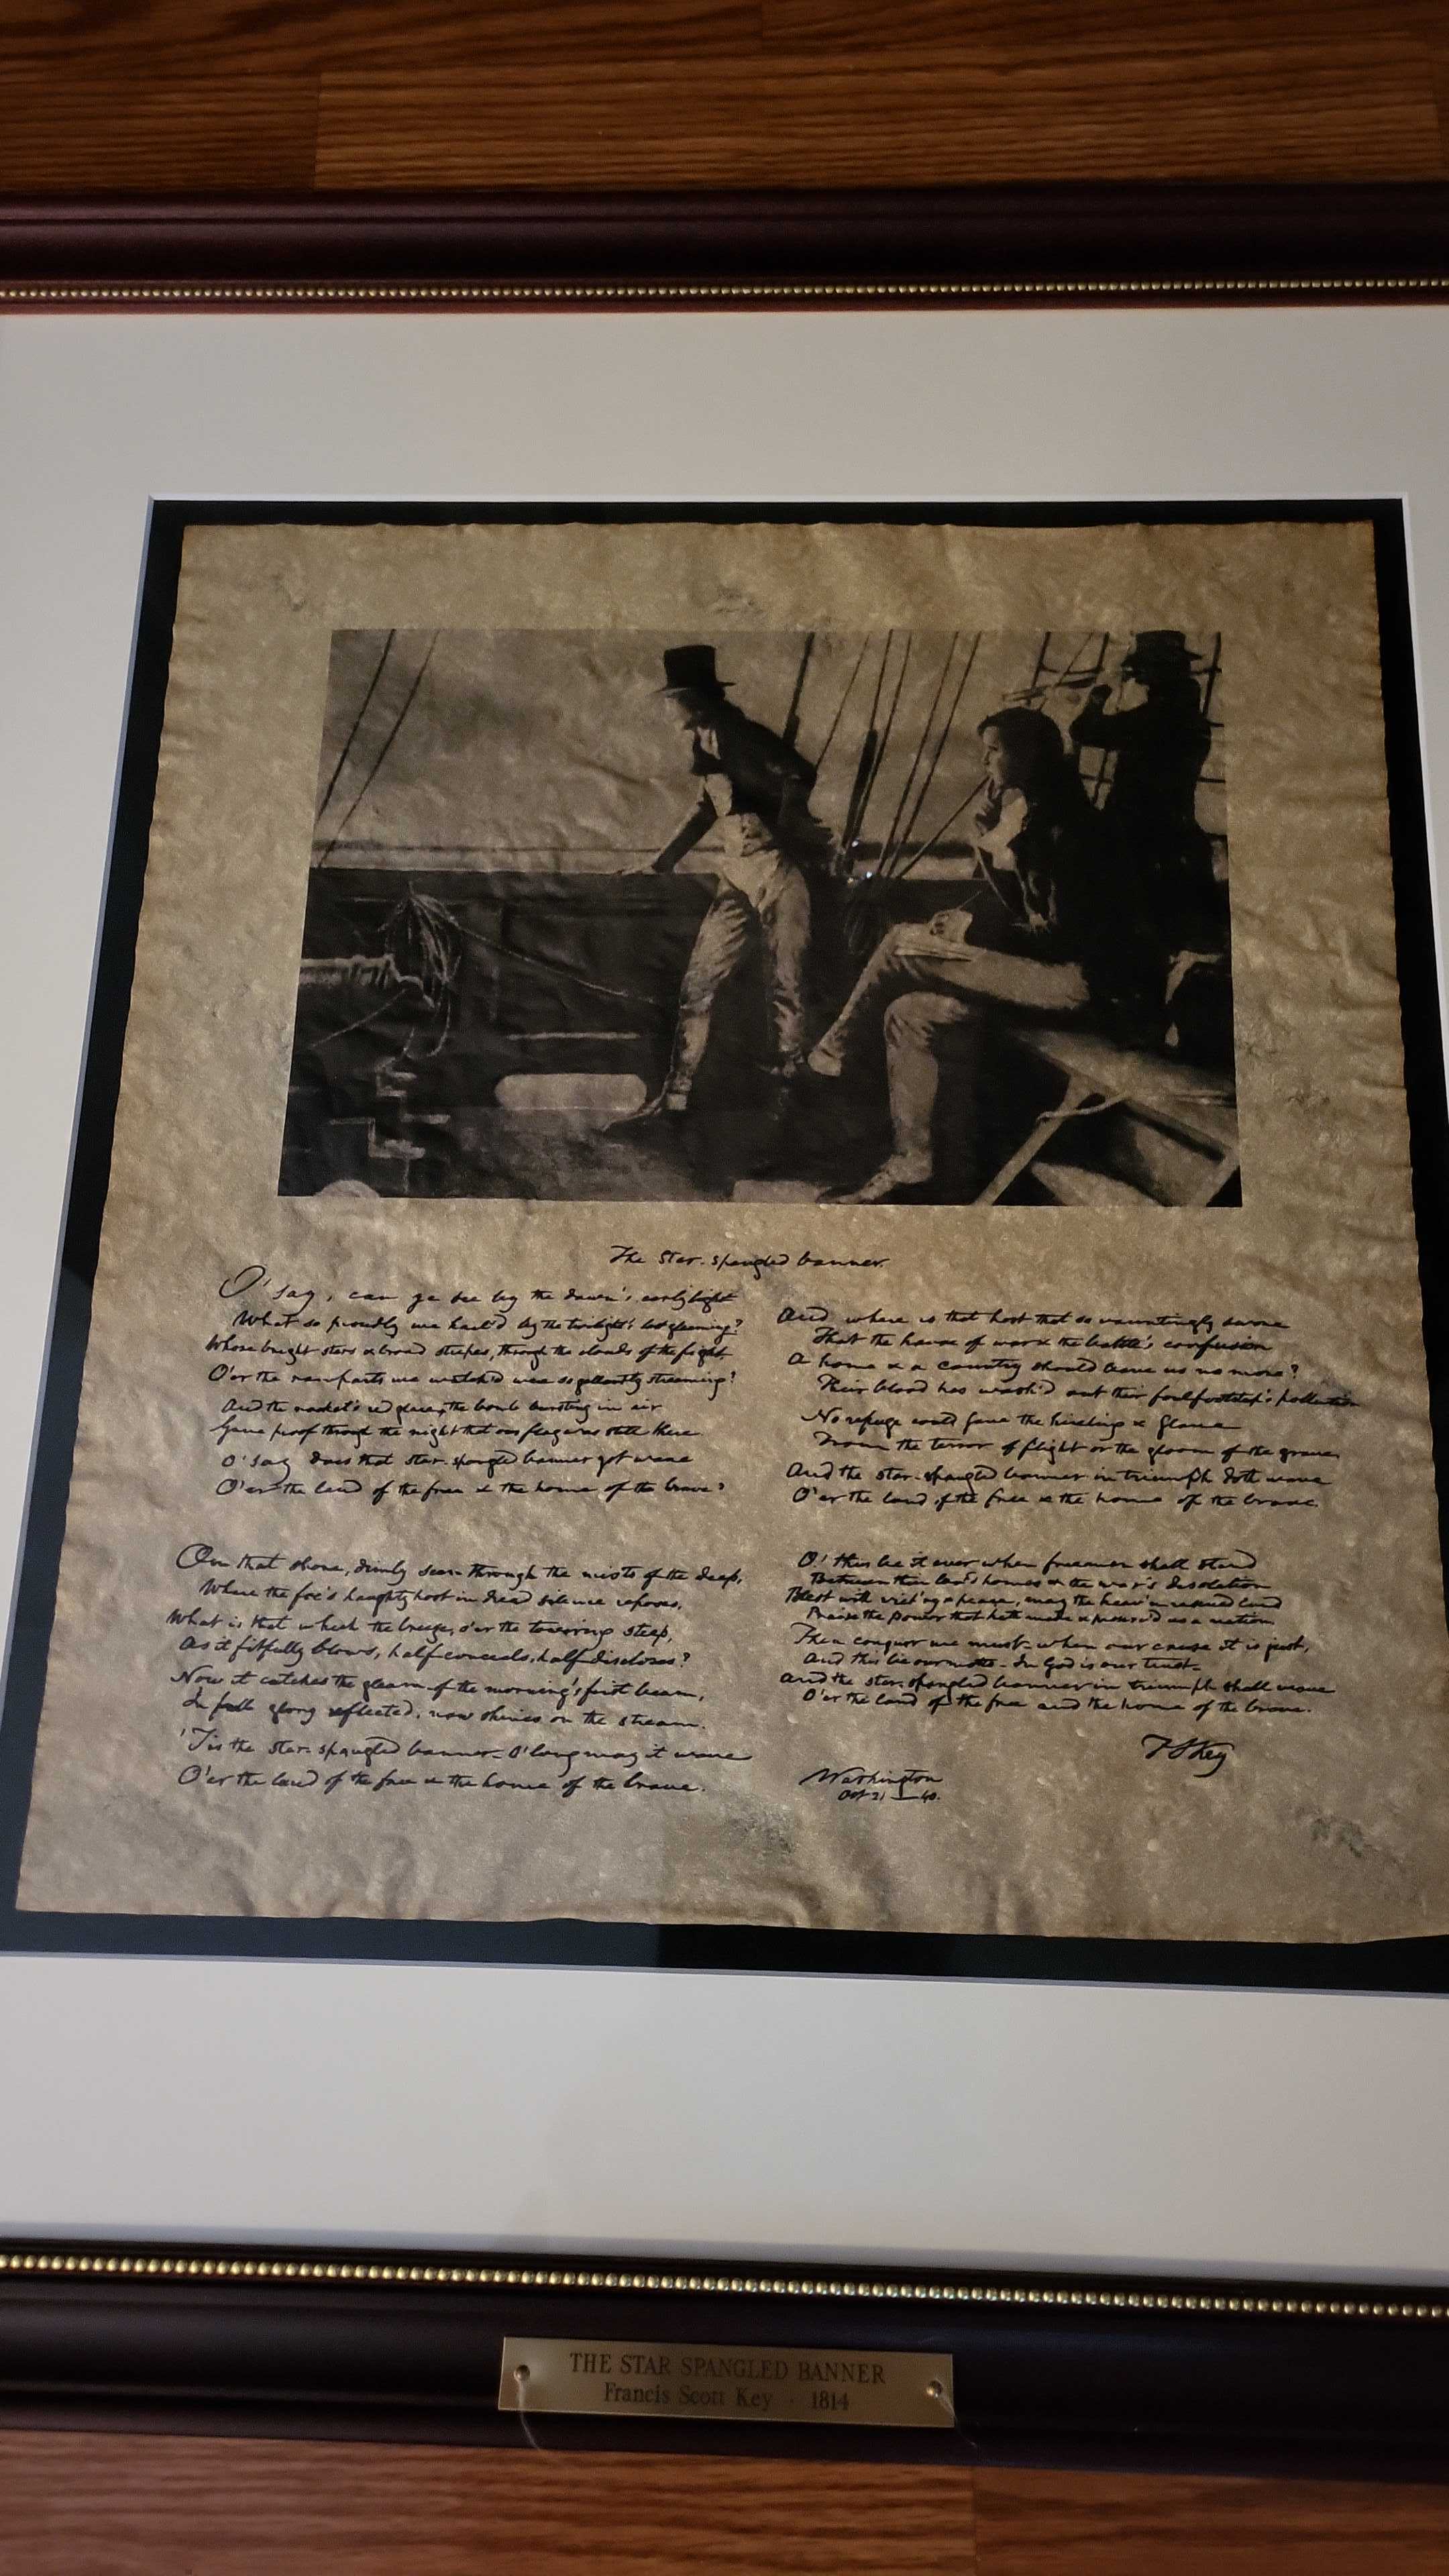 The Star-spangled banner.
O! say, can ye see by the dawn's early light
What so proudly we hail'd by the twilight's last gleaming?
Whose bright stars & broad stripes, through the clouds of the fight,
O'er the ramparts we watch'd were so gallantly streaming?
And the rocket's red glare, the bomb bursting in air
Gave proof through the night that our flag was still there
O! say does that star-spangled banner yet wave
O'er the land of the free & the home of the brave?
On that shore, dimly seen through the mists of the deep,
Where the foe's haughty host in dread silence reposes,
What is that which the breeze, o'er the towering steep,
As it fitfully blows, half conceals, half discloses?
Now it catches the gleam of the morning's first beam,
In full glory reflected, now shines on the stream.
'Tis the star-spangled banner - O! long may it wave
O'er the land of the free & the home of the brave.
And where is that host that so vauntingly swore
That the havoc of war & the battle's confusion
A home & a country should leave us no more?
Their blood has wash'd out their foul footstep's pollution
No refuge could save the hireling & slave
From the terror of flight or the gloom of the grave,
And the star-spangled banner in triumph doth wave
O'er the land of the free & the home of the brave.
O! thus be it ever when freemen shall stand
Between their lov'd homes & the war's desolation
Blest with vict'ry & peace, may the heav'n rescued land
Praise the power that hath made & preserv'd us a nation
Then conquer we must - when our cause it is just,
And this be our motto - In God is our trust -
And the star-spangled banner in triumph shall wave
O'er the land of the free and the home of the brave.
F S Key
Washington
Oct 21 - 40.
THE STAR SPANGLED BANNER
Francis Scott Key · 1814